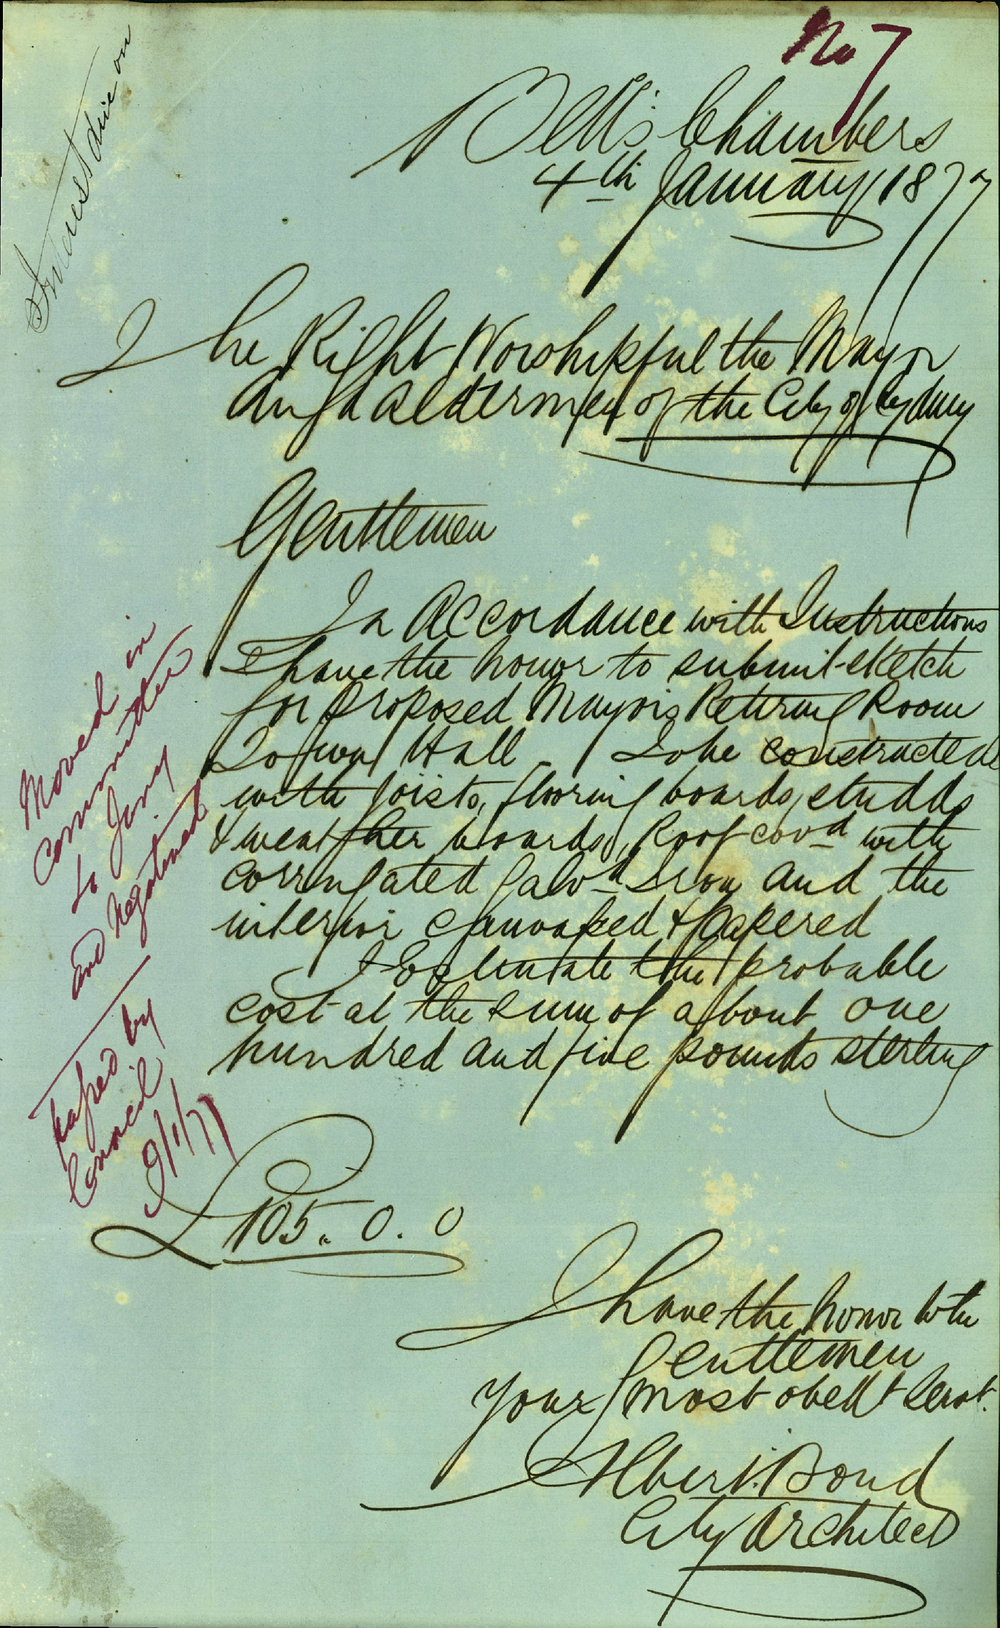 No 7
Bell's Chambers
4th January 1877
The Right Worshipful the Mayor
And Aldermen of the City of Sydney
Gentlemen
In Accordance with Instructions
I have the honor to submit sketch
for proposed Mayor's Retiring Room
Town Hall To be constructed
with joists, flooring boards, studds
& weather boards, Roof covd with
corrugated Galvd Iron and the
interior canvassed & papered
I Estimate the probable
cost at the sum of about one
hundred and five pounds sterling
£105. 0. 0
I have the honor to be
Gentlemen
Your most obedt Servt.
Albert Bond
City Architect
Moved in
Committee
to
and Negatived
by
Council
9/1/77